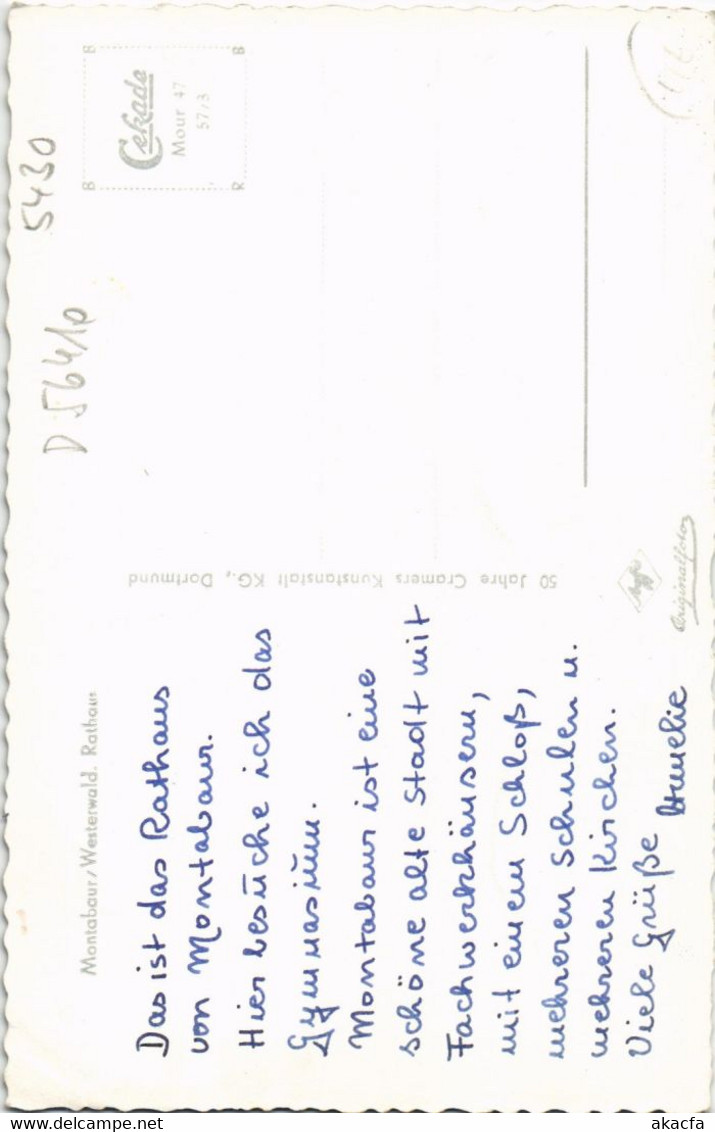 Montabaur/Westerwald. Rathaus
Das ist das Rathaus
von Montabaur.
Hier besuche ich das
Gymnasium.
Montabaur ist eine
schöne alte Stadt mit
Fachwerkhäusern,
mit einem Schloß,
mehreren Schulen u.
mehreren Kirchen.
Viele Grüße
50 Jahre Cramers Kunstanstalt KG., Dortmund
D 56410
5430
Cekade
Mour 47
57/3
Agfa
Originalfoto
delcampe.net
akacfa